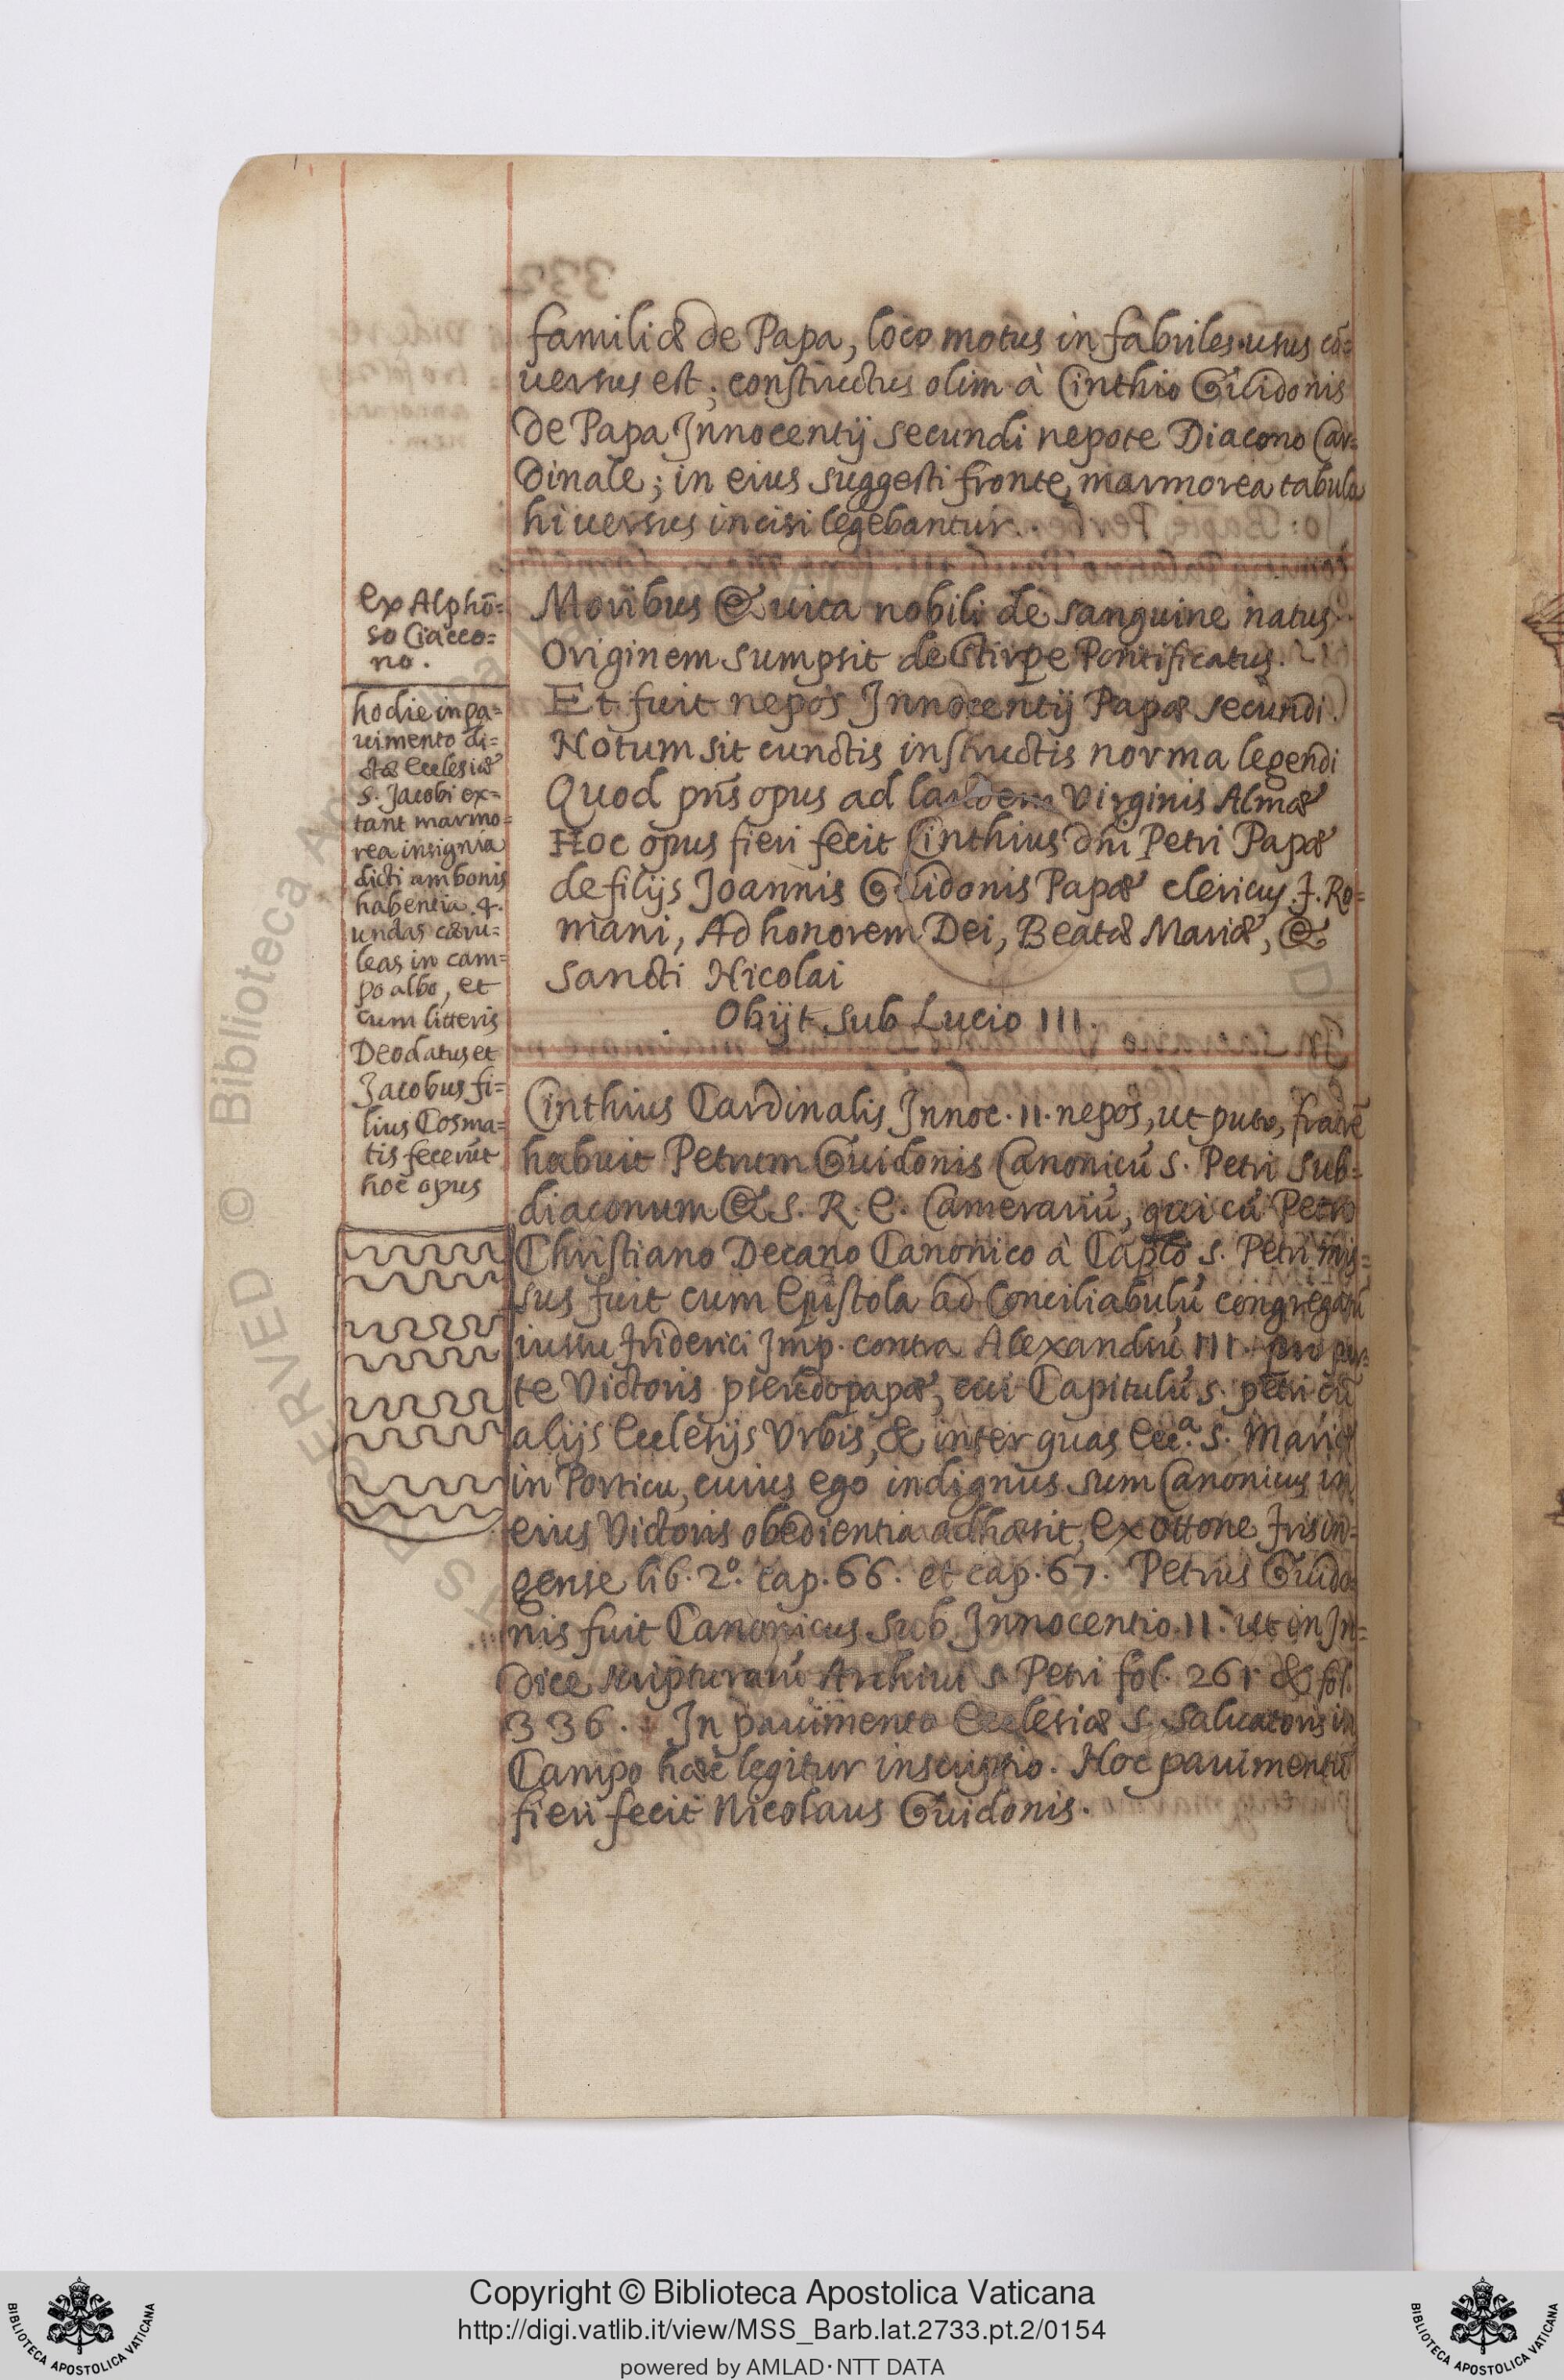 familiæ de Papa, loco motus in fabriles usus cō=
uersus est; constructus olim à Cinthio Guidonis
de Papa Innocentij secundi nepote Diacono Car=
dinale; in eius suggesti fronte, marmorea tabula
hi uersus incisi legebantur.
ex Alphō=
so Ciacco=
no.
Moribus & uita nobili de sanguine natus
Originem sumpsit de stirpe Pontificatus.
Et fuit nepos Innocentij Papæ secundi.
Notum sit cunctis instructis norma legendi
Quod pn̄s opus ad laudem Virginis Almæ
Hoc opus fieri fecit Cinthius dn̄i Petri Papæ
de filijs Joannis Guidonis Papæ clericus. J. Ro=
mani, Ad honorem Dei, Beatæ Mariæ, &
Sancti Nicolai
Obijt sub Lucio III.
hodie in pa=
uimento di=
ctæ Ecclesiæ
S. Jacobi ex=
tant marmo=
rea insignia
dicti ambonis
habentia .4.
undas cæru=
leas in cam=
po albo, et
cum litteris
Deodatus et
Jacobus fi=
lius Cosma=
tis fecerūt
hoc opus
Cinthius Cardinalis Innoc. II. nepos, ut puto, fratrē
habuit Petrum Guidonis Canonicū S. Petri Sub=
diaconum & S. R. E. Camerariū, qui cū Petro
Christiano Decano Canonico à Caplō S. Petri mis=
sus fuit cum Epistola ad Conciliabulū congregatū
iussu Friderici Imp. contra Alexandrū III. pro par=
te Victoris pseudopapæ, cui Capitulū S. Petri cū
alijs Ecclesijs Vrbis, & inter quas Ecc.ᵃ S. Mariæ
in Porticu, cuius ego indignus sum Canonicus in
eius Victoris obedientia adhæsit, ex Ottone Frisin=
gense lib. 2º. cap. 66. et cap. 67. Petrus Guido=
nis fuit Canonicus sub Innocentio. II. ut in In=
dice scripturarū Archiui S. Petri fol. 261 & fol.
336. In pauimento Ecclesiæ S. Saluatoris in
Campo hæc legitur inscriptio. Hoc pauimentū
fieri fecit Nicolaus Guidonis.
Copyright © Biblioteca Apostolica Vaticana
http://digi.vatlib.it/view/MSS_Barb.lat.2733.pt.2/0154
powered by AMLAD·NTT DATA
BIBLIOTECA APOSTOLICA VATICANA
BIBLIOTECA APOSTOLICA VATICANA